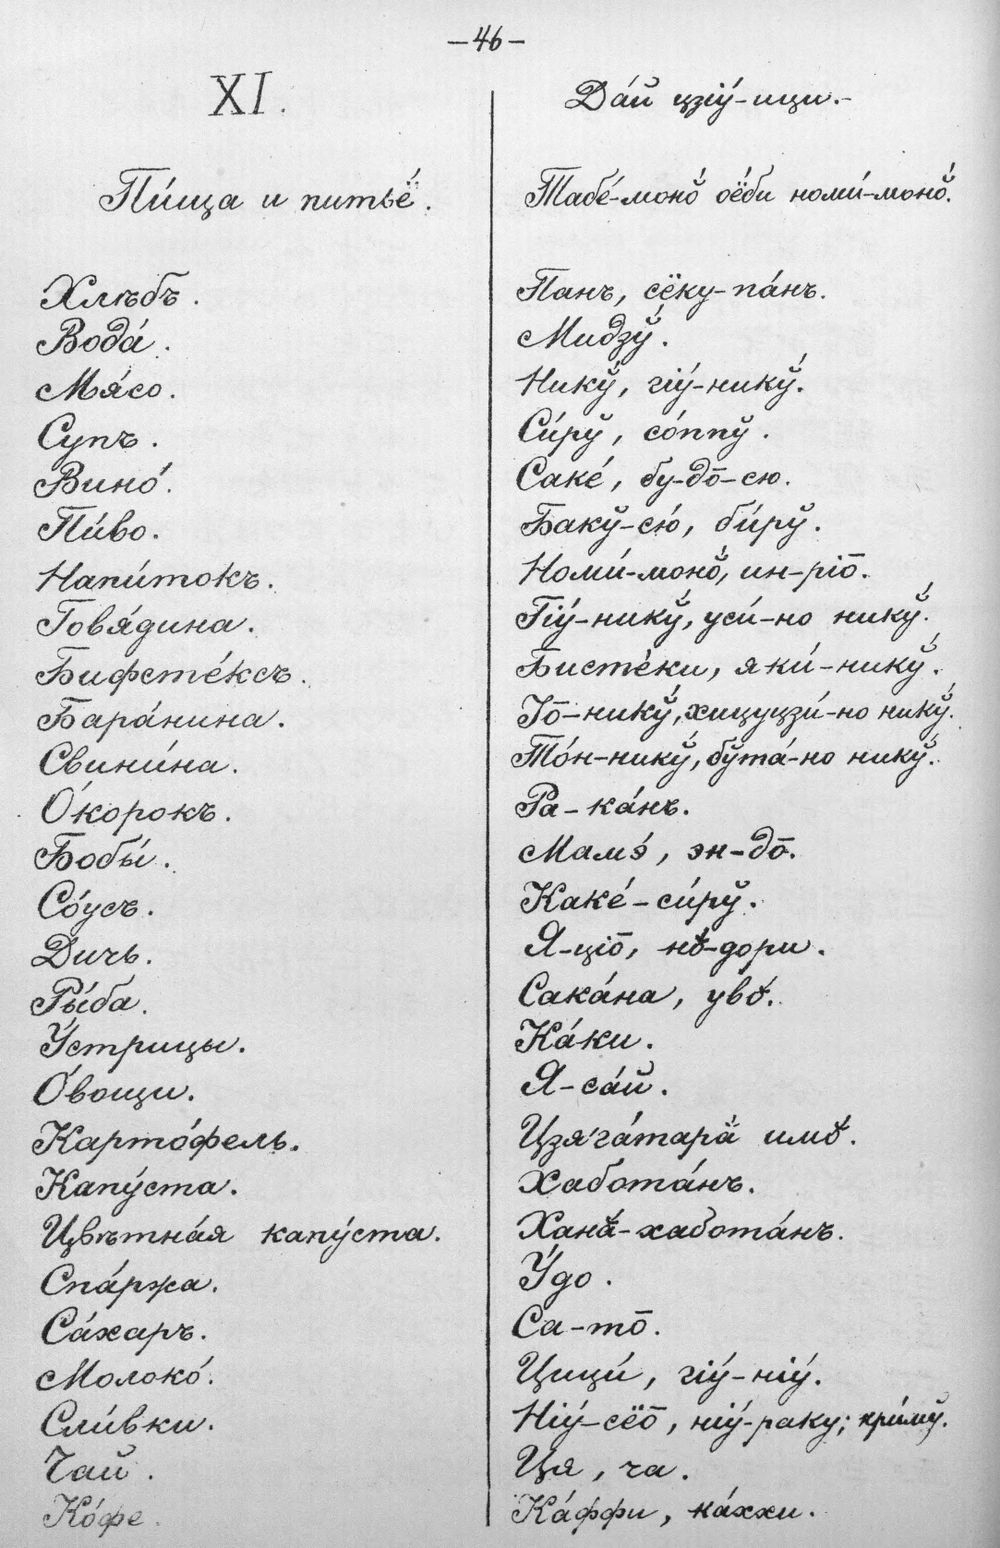 —46—
XI. Да́й цзіу́-ици.-
Пи́ща и питьё. Табе́-моно̆́ оёби номи́-моно̆́.
Хлѣбъ. Панъ, сёку-па́нъ.
Вода́. Мидзў́.
Мя́со. Никў́, гіу́-никў́.
Супъ. Си́рў, со́ппў.
Вино́. Саке́, бу-до̄-сю.
Пи́во. Бакў-сю́, би́рў.
Напи́токъ. Номи́-моно̆́, ин-ріо̄.
Говя́дина. Гіу́-никў́, уси́-но никў́.
Бифсте́ксъ. Бисте́ки, яки́-никў́.
Бара́нина. Іо̄-никў́, хицуцзи́-но никў́.
Свини́на. То́н-никў́, бўта́-но никў́.
О́корокъ. Ра-ка́нъ.
Бобы́. Мамэ́, эн-до̄.
Со́усъ. Каке́-си́рў.
Дичь. Я-ціо̄, но̆́-дори.
Ры́ба. Сака́на, уво̆́.
У́стрицы. Ка́ки.
О́вощи. Я-са́й.
Карто́фель. Цзяга́тарӑ имо̆́.
Капу́ста. Хабота́нъ.
Цвѣтна́я капу́ста. Ханӑ́-хабота́нъ.
Спа́ржа. У́до.
Са́харъ. Са-то̄.
Молоко́. Цици́, гіу́-ніу́.
Сли́вки. Ніу́-сёо̄, ніу́-раку; кри́мў.
Чай. Ця, ча.
Ко́фе. Ка́ффи, ка́ххи.